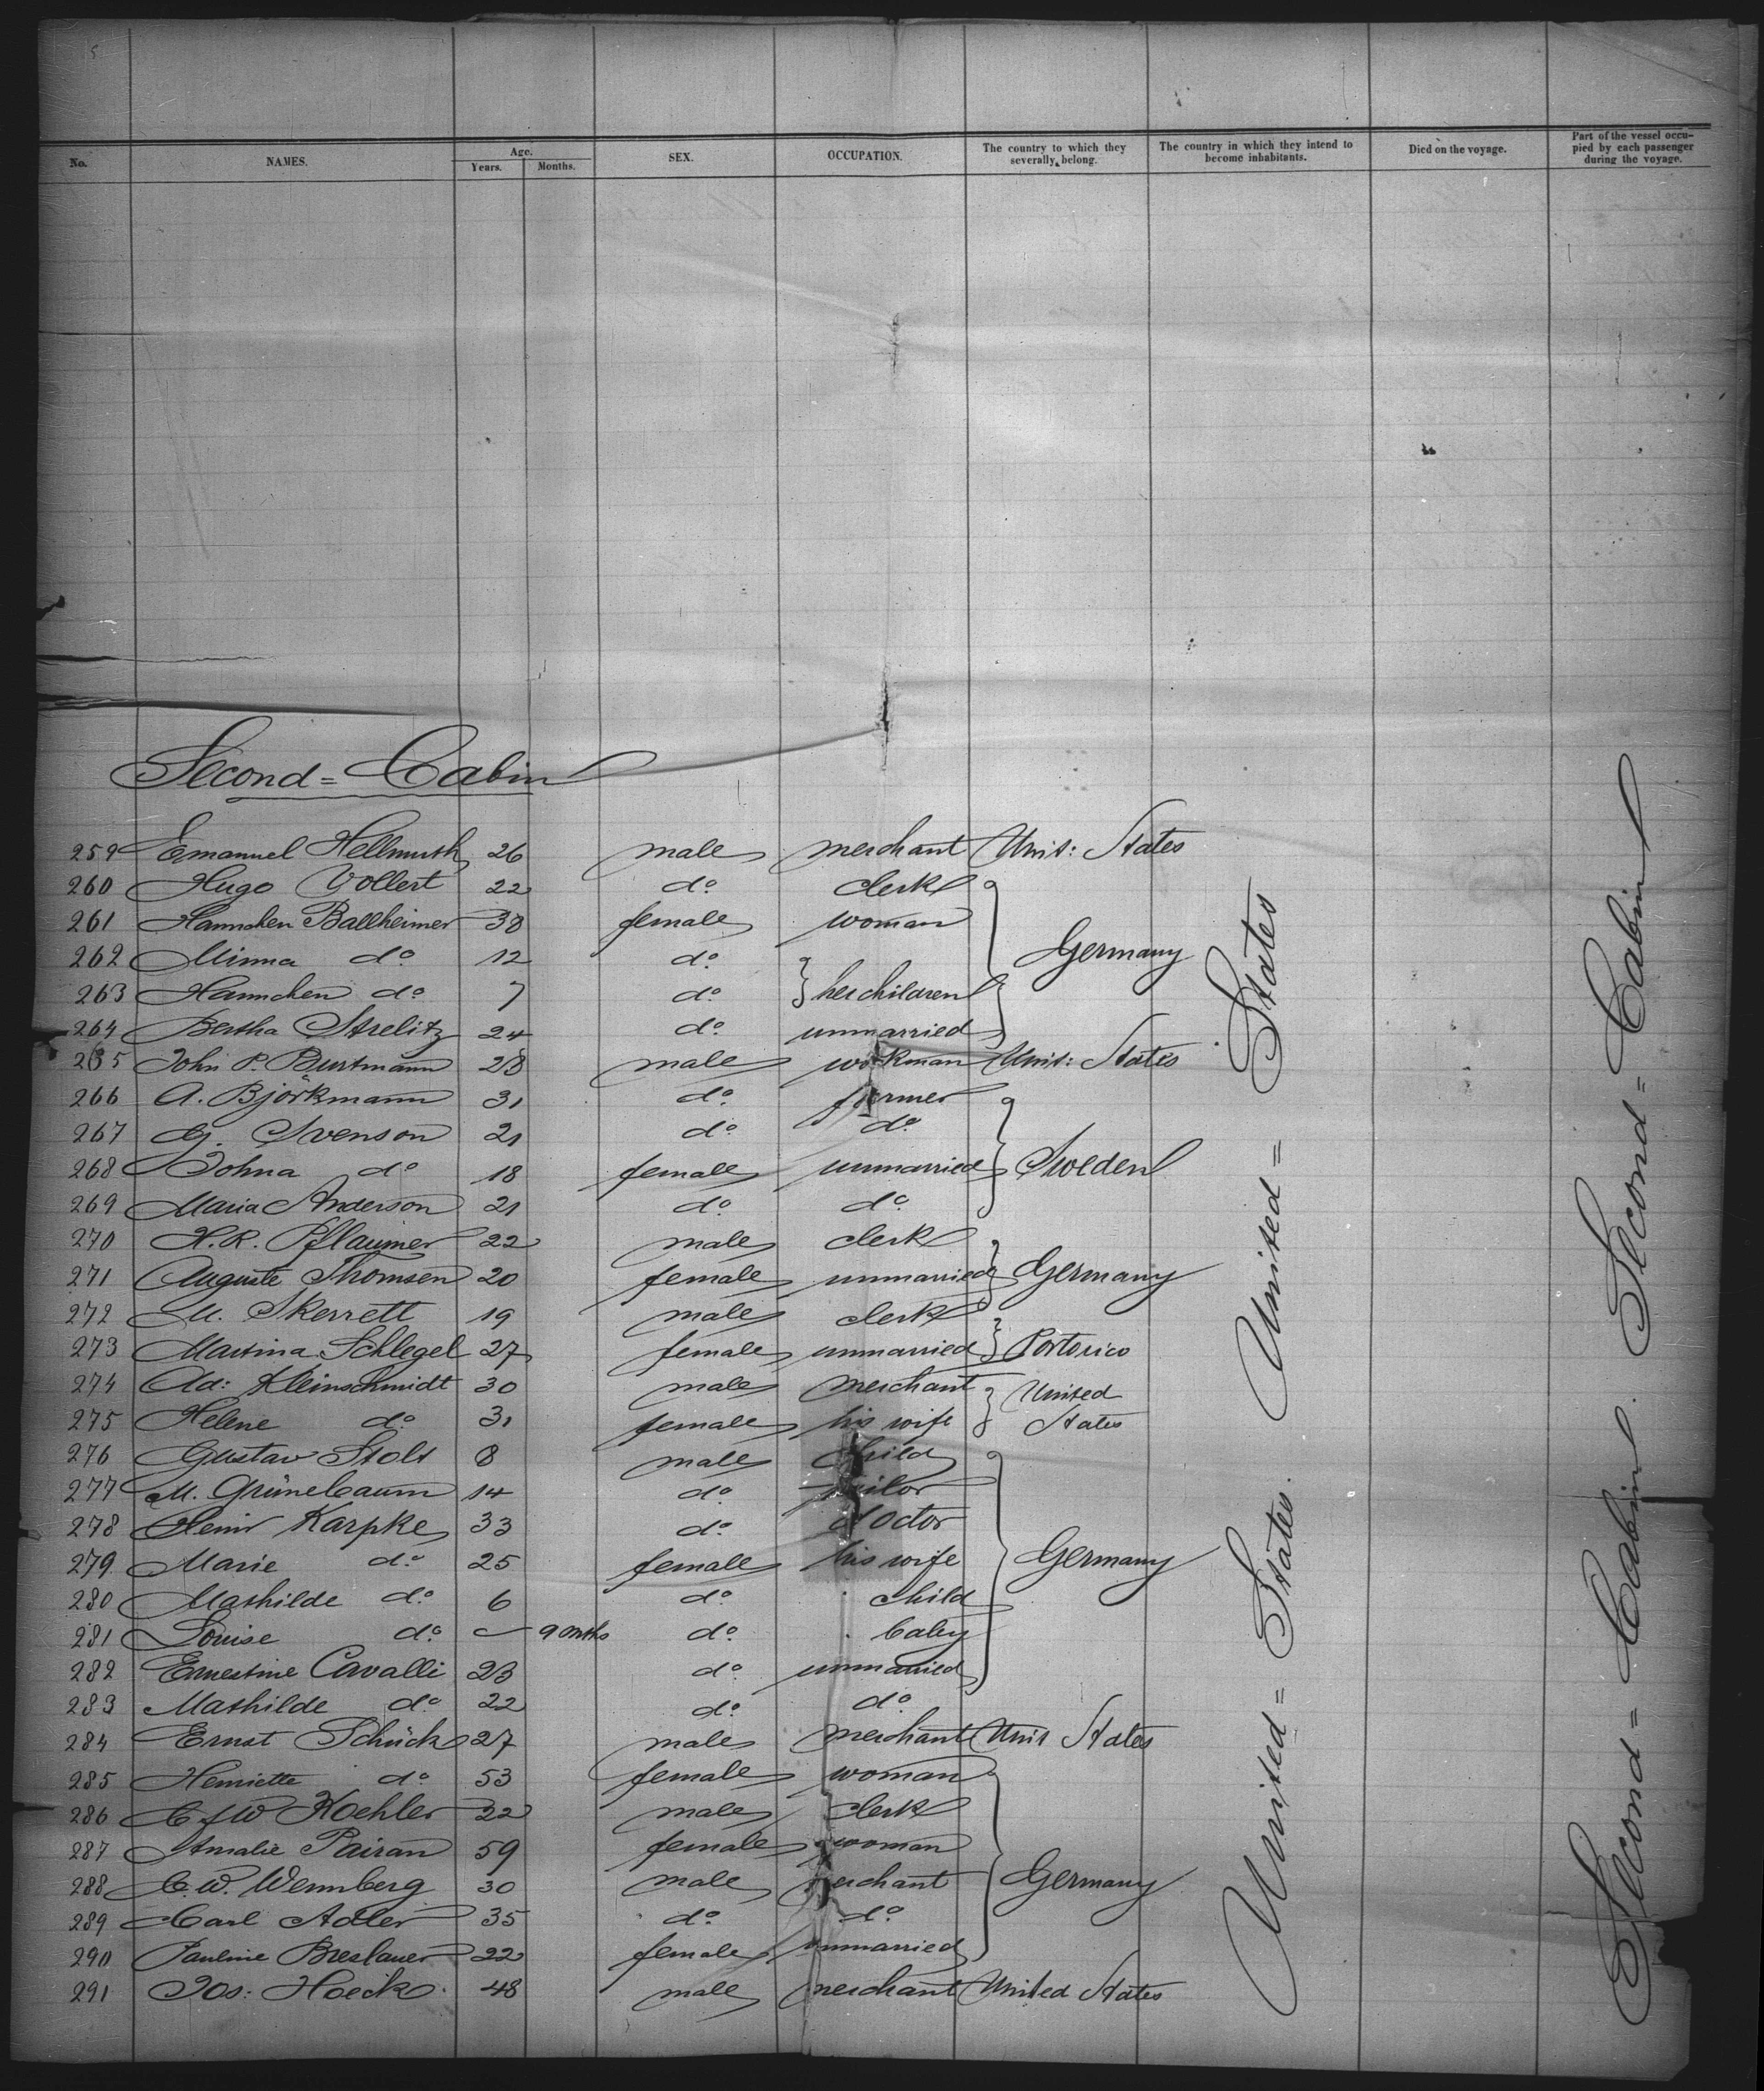 No. NAMES. Age. Years. Months. SEX. OCCUPATION. The country to which they severally belong. The country in which they intend to become inhabitants. Died on the voyage. Part of the vessel occupied by each passenger during the voyage.
Second=Cabin
259 Emanuel Hellmuth 26 male merchant Unit: States
260 Hugo Vollert 22 do clerk
261 Hannchen Ballheimer 38 female woman
262 Minna do 12 do
Germany
263 Hannchen do 7 do her children
264 Bertha Strelitz 24 do unmarried
265 John P. Burtmann 28 male workman Unit: States
266 A. Björkmann 31 do farmer
267 G. Svenson 21 do do
268 Johna do 18 female unmarried Sweden
269 Maria Anderson 21 do do
270 H. R. Pflaumer 22 male clerk
271 Auguste Thomsen 20 female unmarried Germany
272 M. Skerrett 19 male clerk
273 Martina Schlegel 27 female unmarried Portorico
274 Ad: Kleinschmidt 30 male merchant United
275 Helene do 31 female his wife States
276 Gustav Stolt 8 male child
277 M. Grünebaum 14 do tailor
278 Heinr Karpke 33 do doctor
279 Marie do 25 female his wife Germany
280 Mathilde do 6 do child
281 Louise do 9 mths do baby
282 Ernestine Cavalli 23 do unmarried
283 Mathilde do 22 do do
284 Ernst Schück 27 male merchant Unit States
285 Henriette do 53 female woman
286 C. F. W Koehler 22 male clerk
287 Amalie Pairan 59 female woman
288 C. W. Wennberg 30 male merchant Germany
289 Carl Adler 35 do do
290 Pauline Breslauer 22 female unmarried
291 Jos: Hoeck 48 male merchant United States
United = States. United = States
Second = Cabin. Second = Cabin